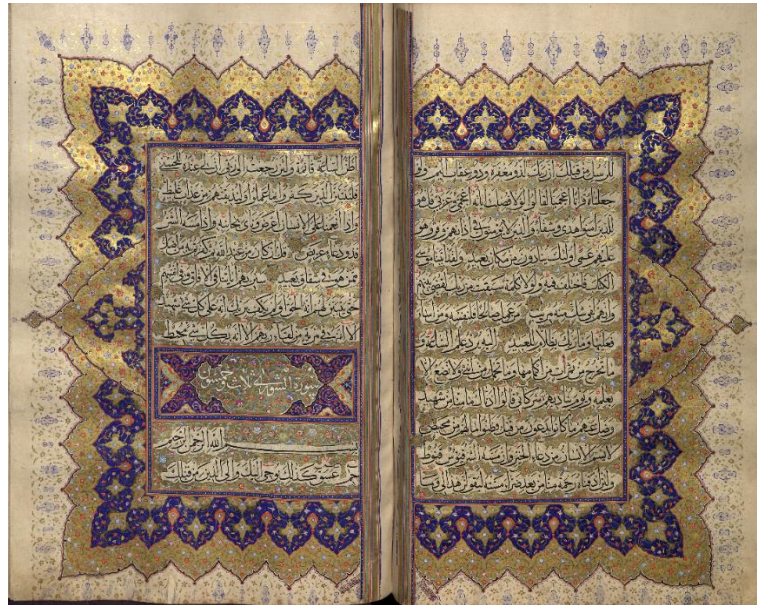 للرسل من قبلك ان ربك لذو مغفرة وذو عقاب اليم ولو
جعلناه قرانا اعجميا لقالوا لولا فصلت اياته ءاعجمي وعربي قل هو
للذين امنوا هدى وشفاء والذين لا يؤمنون في اذانهم وقر وهو
عليهم عمى اولئك ينادون من مكان بعيد ولقد اتينا موسى
الكتاب فاختلف فيه ولولا كلمة سبقت من ربك لقضي بينهم
وانهم لفي شك منه مريب من عمل صالحا فلنفسه ومن اساء
فعليها وما ربك بظلام للعبيد اليه يرد علم الساعة و
ما تخرج من ثمرات من اكمامها وما تحمل من انثى ولا تضع الا
بعلمه ويوم يناديهم اين شركائي قالوا اذناك ما منا من شهيد
وضل عنهم ما كانوا يدعون من قبل وظنوا ما لهم من محيص
لا يسئم الانسان من دعاء الخير وان مسه الشر فيؤس قنوط
ولئن اذقناه رحمة منا من بعد ضراء مسته ليقولن هذا لي وما
اظن الساعة قائمة ولئن رجعت الى ربي ان لي عنده للحسنى
فلننبئن الذين كفروا بما عملوا ولنذيقنهم من عذاب غليظ
واذا انعمنا على الانسان اعرض وناى بجانبه واذا مسه الشر
فذو دعاء عريض قل ارايتم ان كان من عند الله ثم كفرتم به من اضل
ممن هو في شقاق بعيد سنريهم اياتنا في الافاق وفي انفسهم
حتى يتبين لهم انه الحق اولم يكف بربك انه على كل شيء شهيد
الا انهم في مرية من لقاء ربهم الا انه بكل شيء محيط
سورة الشورى ثلاث وخمسون
بسم الله الرحمن الرحيم
حم عسق كذلك يوحي اليك والى الذين من قبلك